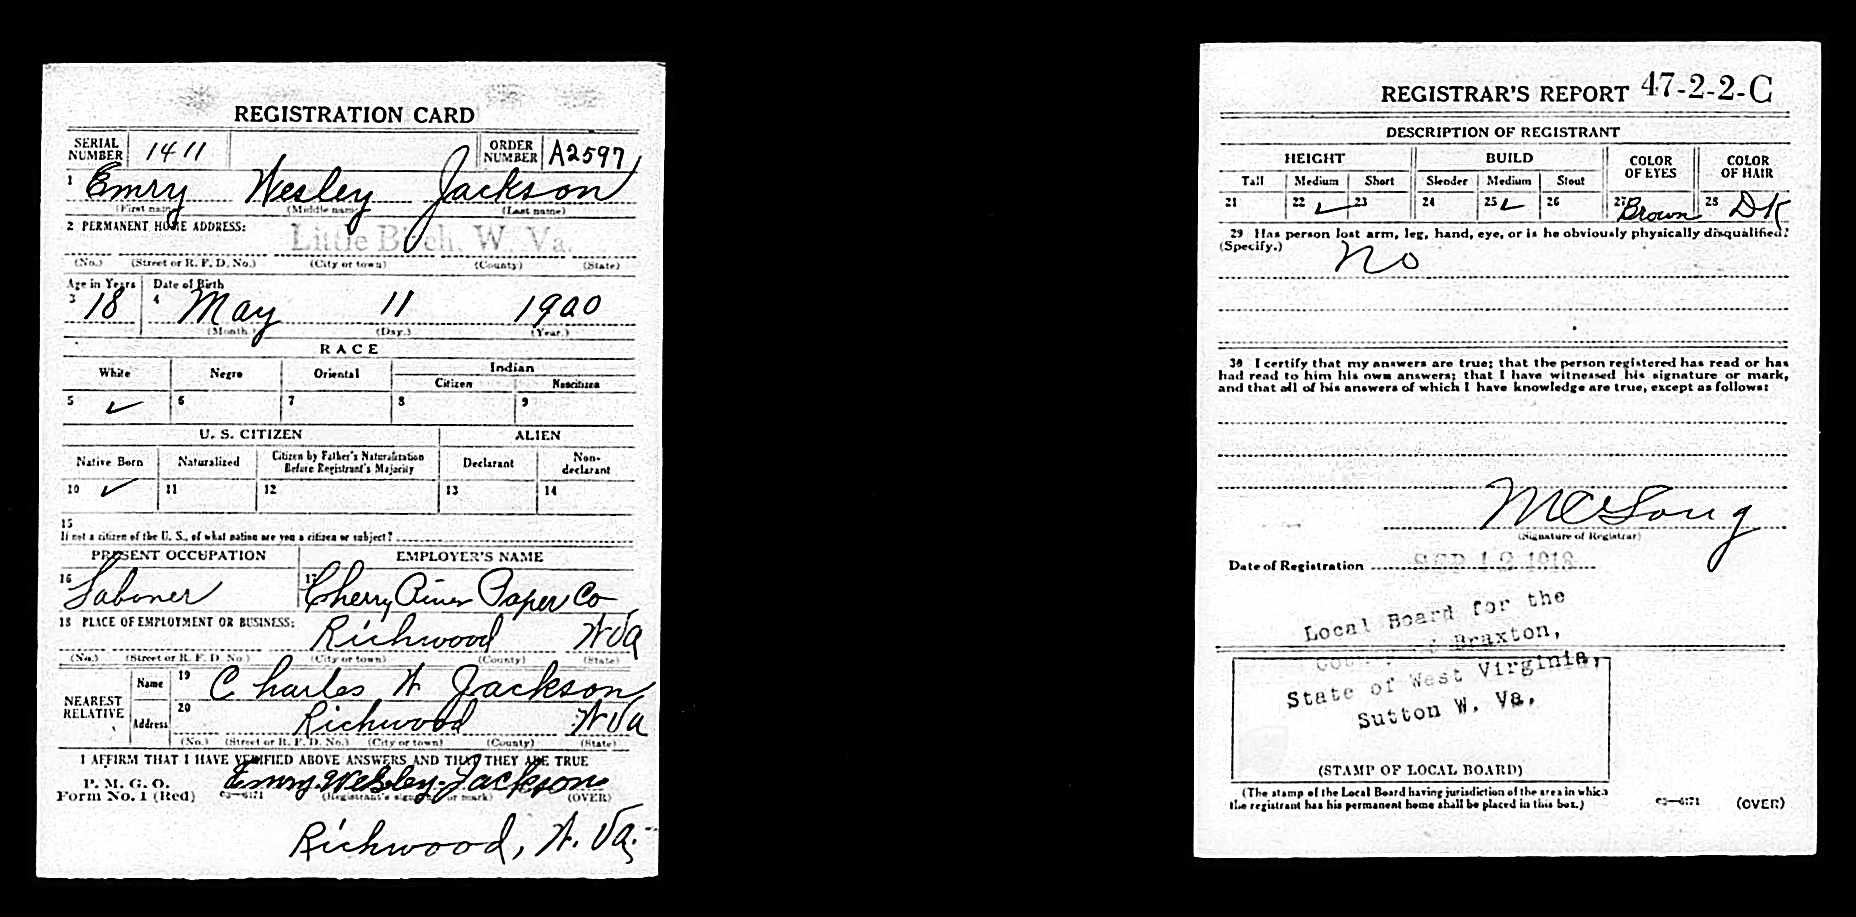 REGISTRATION CARD
SERIAL NUMBER 1411 ORDER NUMBER A2597
1 Emry Wesley Jackson
(First name) (Middle name) (Last name)
2 PERMANENT HOME ADDRESS: Little Birch, W. Va.
(No.) (Street or R. F. D. No.) (City or town) (County) (State)
Age in Years Date of Birth
3 18 4 May 11 1900
(Month.) (Day.) (Year.)
RACE
White Negro Oriental Indian
Citizen Noncitizen
5 ✓ 6 7 8 9
U. S. CITIZEN ALIEN
Native Born Naturalized Citizen by Father's Naturalization Before Registrant's Majority Declarant Non-declarant
10 ✓ 11 12 13 14
15
If not a citizen of the U. S., of what nation are you a citizen or subject?
PRESENT OCCUPATION EMPLOYER'S NAME
16 Laborer 17 Cherry River Paper Co
18 PLACE OF EMPLOYMENT OR BUSINESS: Richwood W Va
(No.) (Street or R. F. D. No.) (City or town) (County) (State)
NEAREST RELATIVE Name 19 Charles W Jackson
Address 20 Richwood W Va
(No.) (Street or R. F. D. No.) (City or town) (County) (State)
I AFFIRM THAT I HAVE VERIFIED ABOVE ANSWERS AND THAT THEY ARE TRUE
P. M. G. O.
Form No. 1 (Red) 03—6171 Emry Wesley Jackson
(Registrant's signature or mark) (OVER)
Richwood, W. Va.
REGISTRAR'S REPORT 47-2-2-C
DESCRIPTION OF REGISTRANT
HEIGHT BUILD COLOR OF EYES COLOR OF HAIR
Tall Medium Short Slender Medium Stout
21 22 ✓ 23 24 25 ✓ 26 27 Brown 28 DK
29 Has person lost arm, leg, hand, eye, or is he obviously physically disqualified?
(Specify.) no
30 I certify that my answers are true; that the person registered has read or has
had read to him his own answers; that I have witnessed his signature or mark,
and that all of his answers of which I have knowledge are true, except as follows:
(Signature of Registrar)
Date of Registration SEP 12 1918
Local Board for the
County of Braxton,
State of West Virginia,
Sutton W. Va.
(STAMP OF LOCAL BOARD)
(The stamp of the Local Board having jurisdiction of the area in which
the registrant has his permanent home shall be placed in this box.)
03—6171 (OVER)